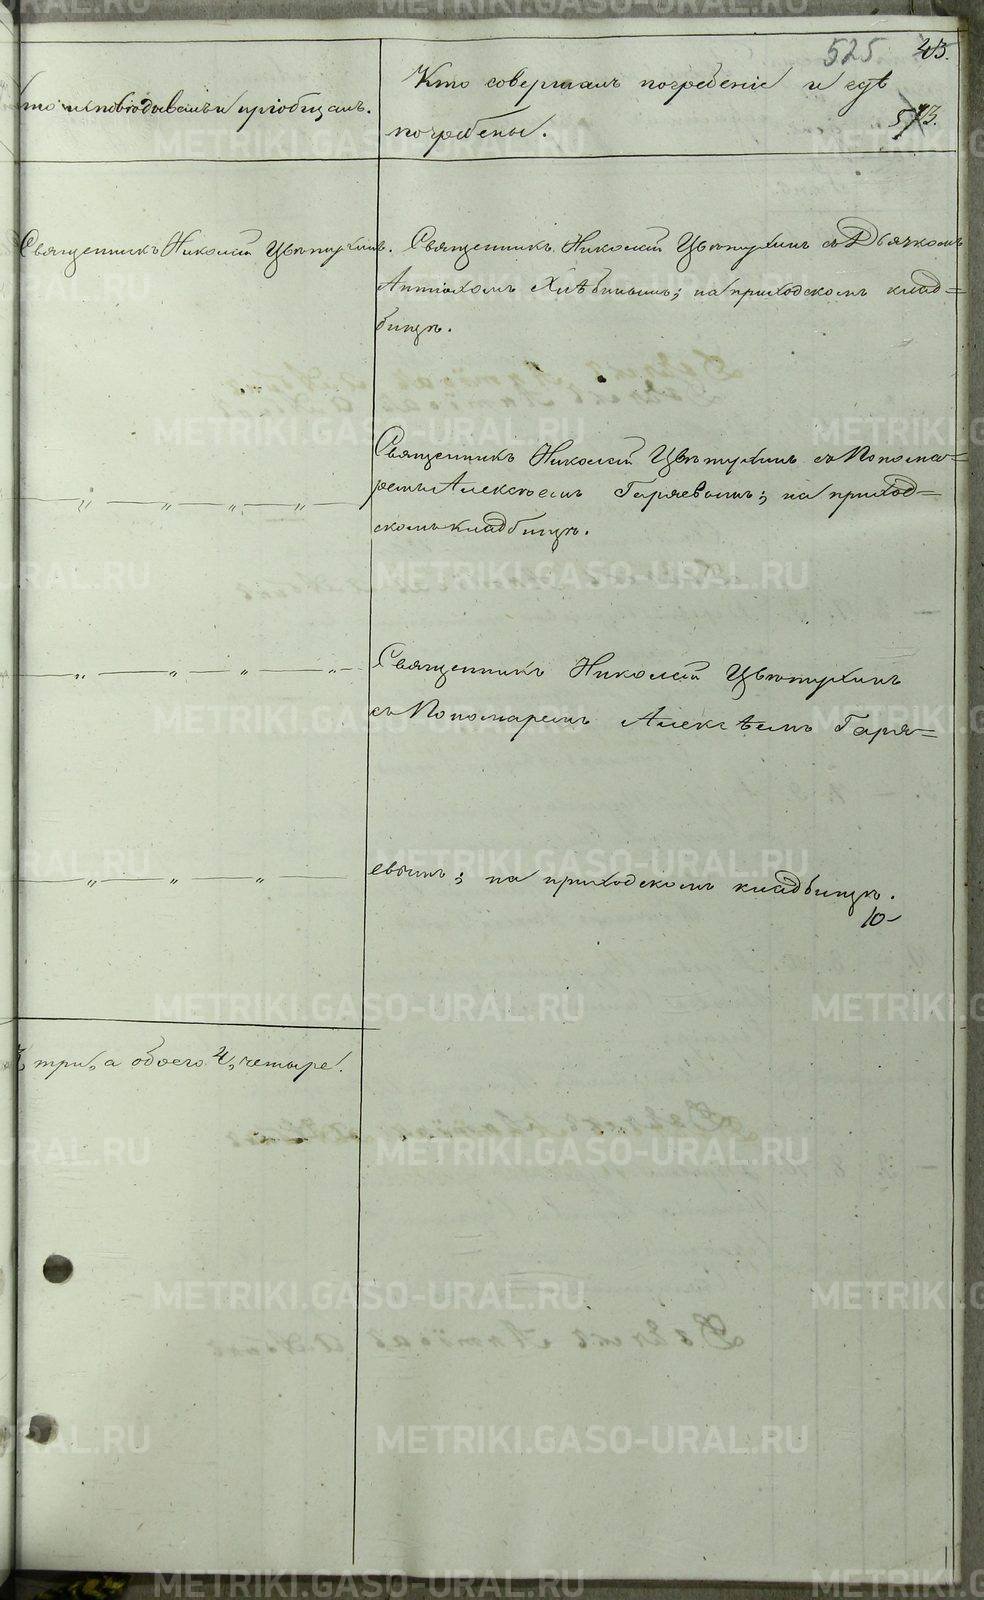 525 43.
Кто исповѣдывалъ и пріобщалъ.
Кто совершалъ погребеніе и гдѣ
погребены.
573.
Священникъ Николай Цвѣтухинъ.
Священникъ Николай Цвѣтухинъ съ Дьячкомъ
Антіохомъ Хлѣбинымъ; на приходскомъ клад=
бищѣ.
Священникъ Николай Цвѣтухинъ съ Понома=
ремъ Алексѣемъ Гаряевымъ; на приход=
скомъ кладбищѣ.
— „ — „ — „ — „ —
Священникъ Николай Цвѣтухинъ
съ Пономаремъ Алексѣемъ Гаря=
— „ — „ — „ — „ —
евымъ; на приходскомъ кладбищѣ.
— „ — „ — „ —
10
три, а обоего 4, четыре.
METRIKI.GASO-URAL.RU